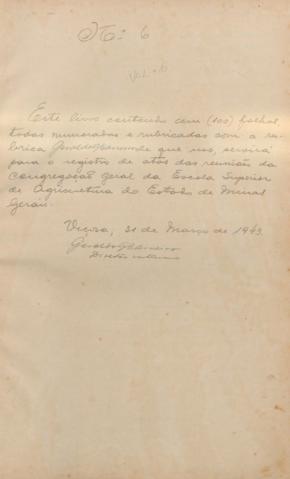 Nº 6
Vol. 6
Este livro contendo cem (100) folhas,
todas numeradas e rubricadas com a ru-
brica que uso, servirá
para o registro de atas das reunião da
Congregação Geral da Escola Superior
de Agricultura do Estado de Minas
Gerais.
Viçosa, 31 de Março de 1943.
Diretor interino